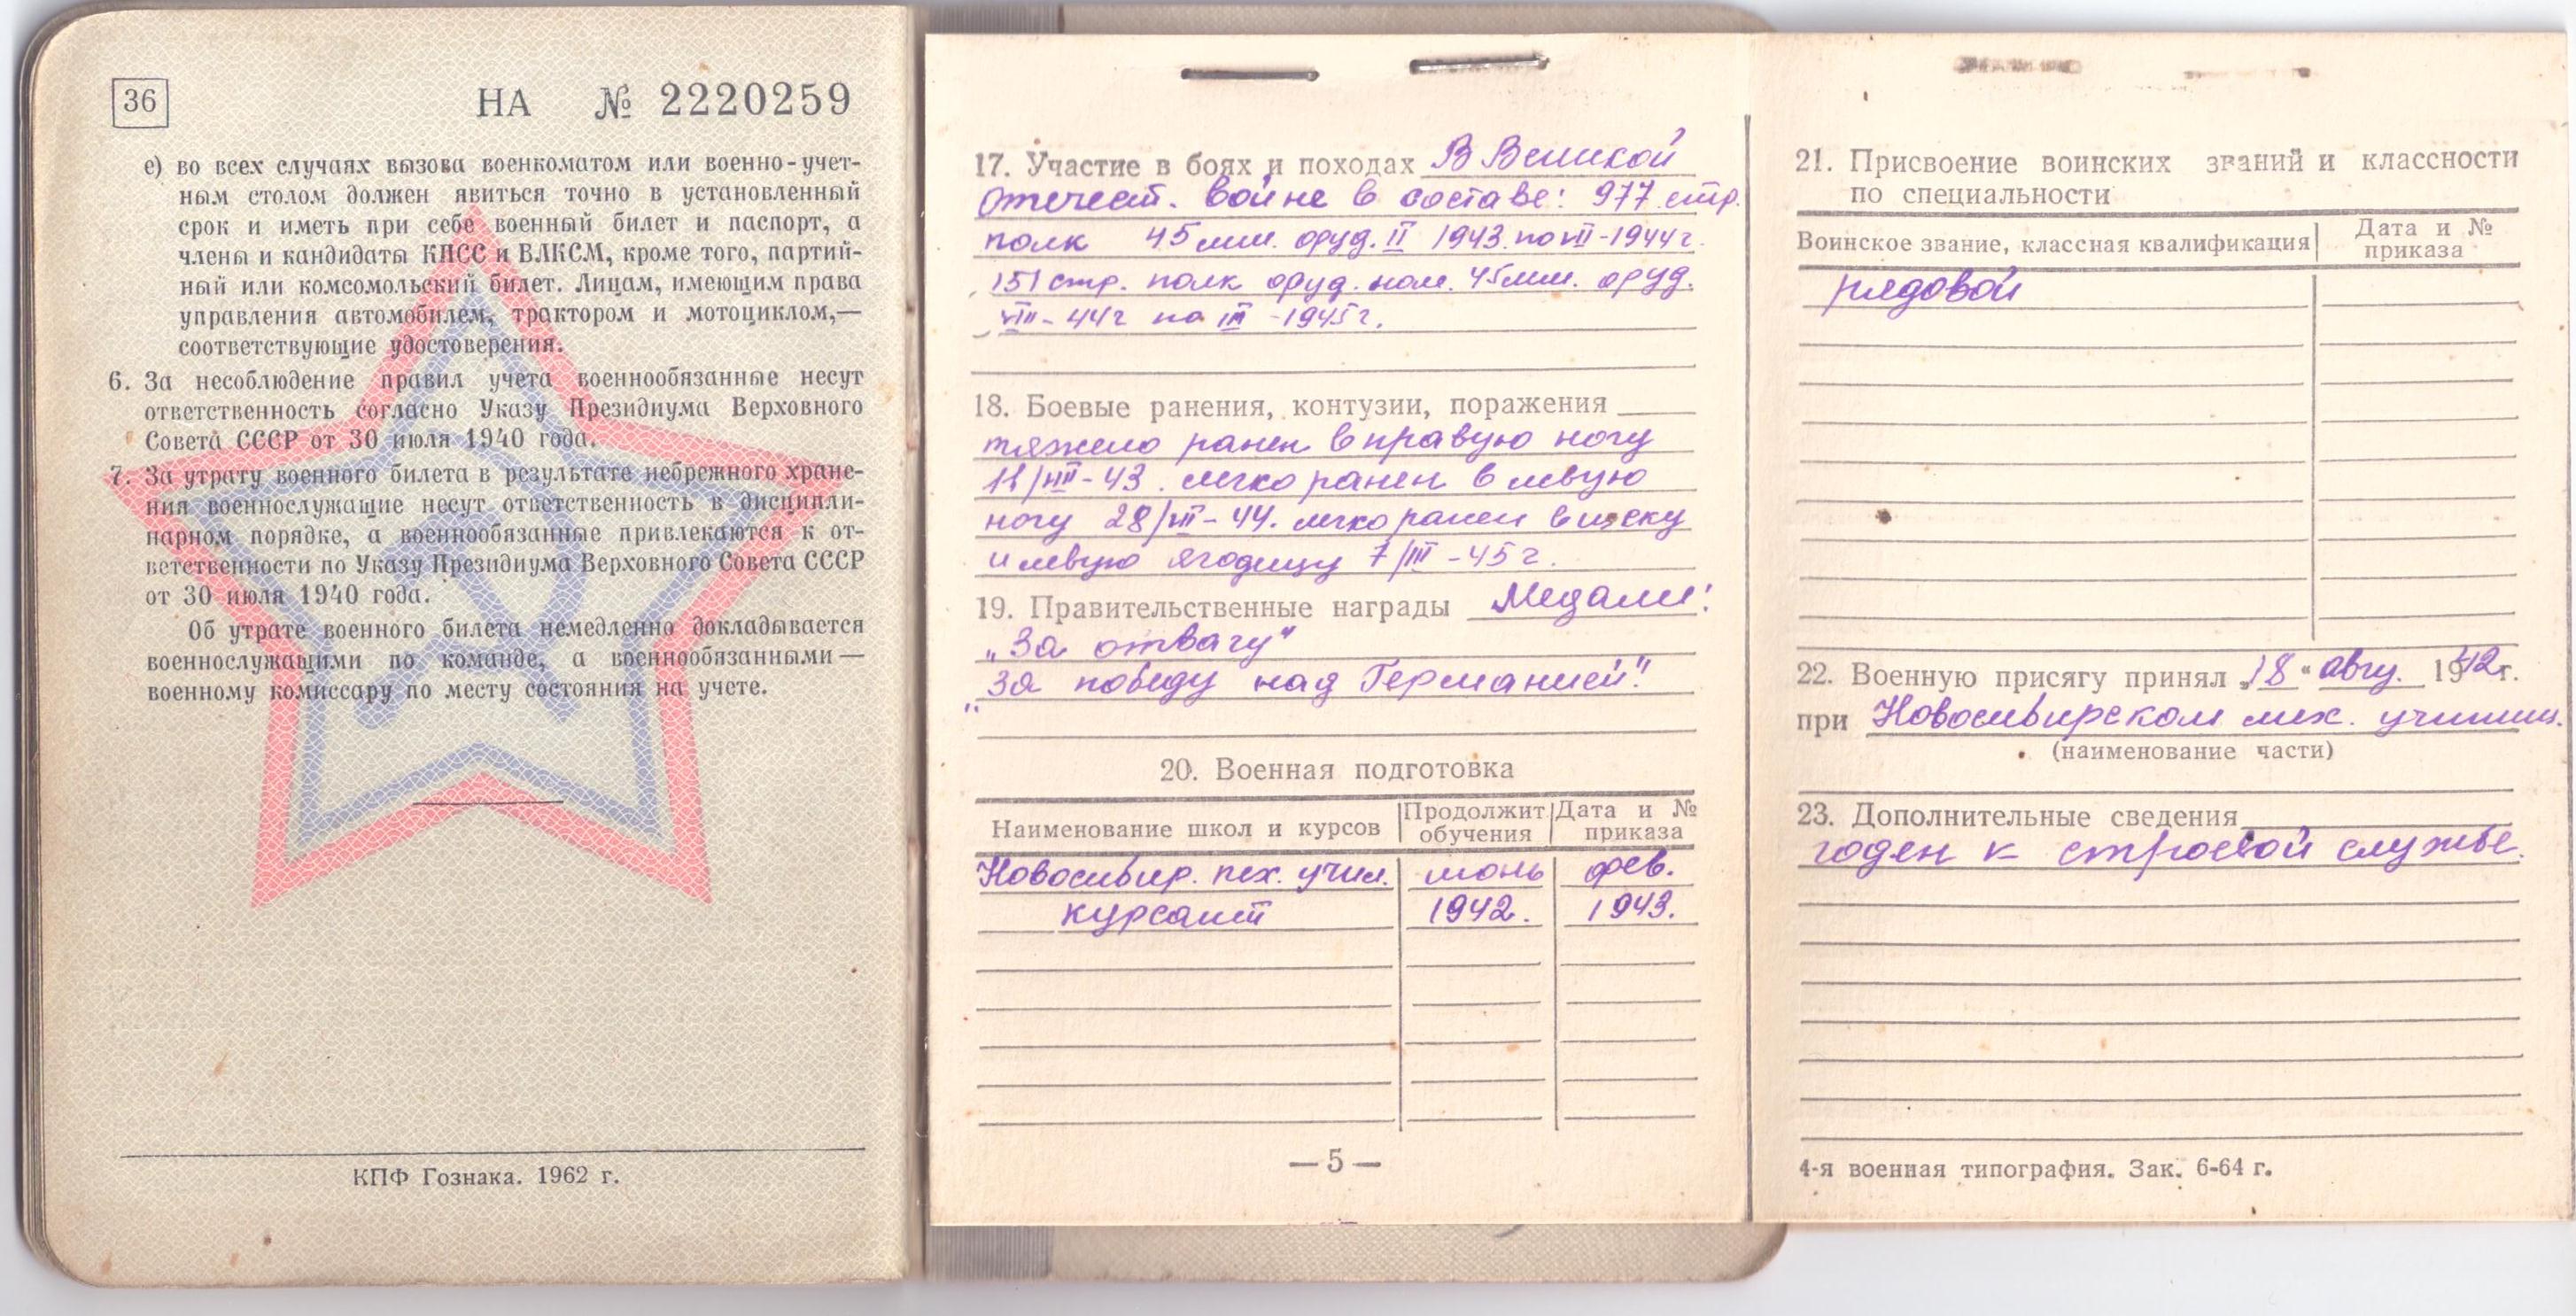 36
НА № 2220259
е) во всех случаях вызова военкоматом или военно-учет-
ным столом должен явиться точно в установленный
срок и иметь при себе военный билет и паспорт, а
члены и кандидаты КПСС и ВЛКСМ, кроме того, партий-
ный или комсомольский билет. Лицам, имеющим права
управления автомобилем, трактором и мотоциклом,—
соответствующие удостоверения.
6. За несоблюдение правил учета военнообязанные несут
ответственность согласно Указу Президиума Верховного
Совета СССР от 30 июля 1940 года.
7. За утрату военного билета в результате небрежного хране-
ния военнослужащие несут ответственность в дисципли-
нарном порядке, а военнообязанные привлекаются к от-
ветственности по Указу Президиума Верховного Совета СССР
от 30 июля 1940 года.
Об утрате военного билета немедленно докладывается
военнослужащими по команде, а военнообязанными —
военному комиссару по месту состояния на учете.
КПФ Гознака. 1962 г.
17. Участие в боях и походах В Великой
Отечест. войне в составе: 977 стр.
полк 45 мм. оруд. II 1943. по VII-1944 г.
151 стр. полк оруд. ном. 45 мм. оруд.
VIII-44 г по III-1945 г.
18. Боевые ранения, контузии, поражения
тяжело ранен в правую ногу
11/VIII-43. легко ранен в левую
ногу 28/VII-44. легко ранен в щеку
и левую ягодицу 7/III-45 г.
19. Правительственные награды Медали:
„За отвагу"
„За победу над Германией"
20. Военная подготовка
Наименование школ и курсов Продолжит обучения Дата и № приказа
Новосибир. пех. учил. июнь фев.
курсант 1942. 1943.
—5—
21. Присвоение воинских званий и классности
по специальности
Воинское звание, классная квалификация Дата и № приказа
рядовой
22. Военную присягу принял „18" авгу. 1942 г.
при Новосибирском пех. училищ.
(наименование части)
23. Дополнительные сведения
годен к строевой службе.
4-я военная типография. Зак. 6-64 г.